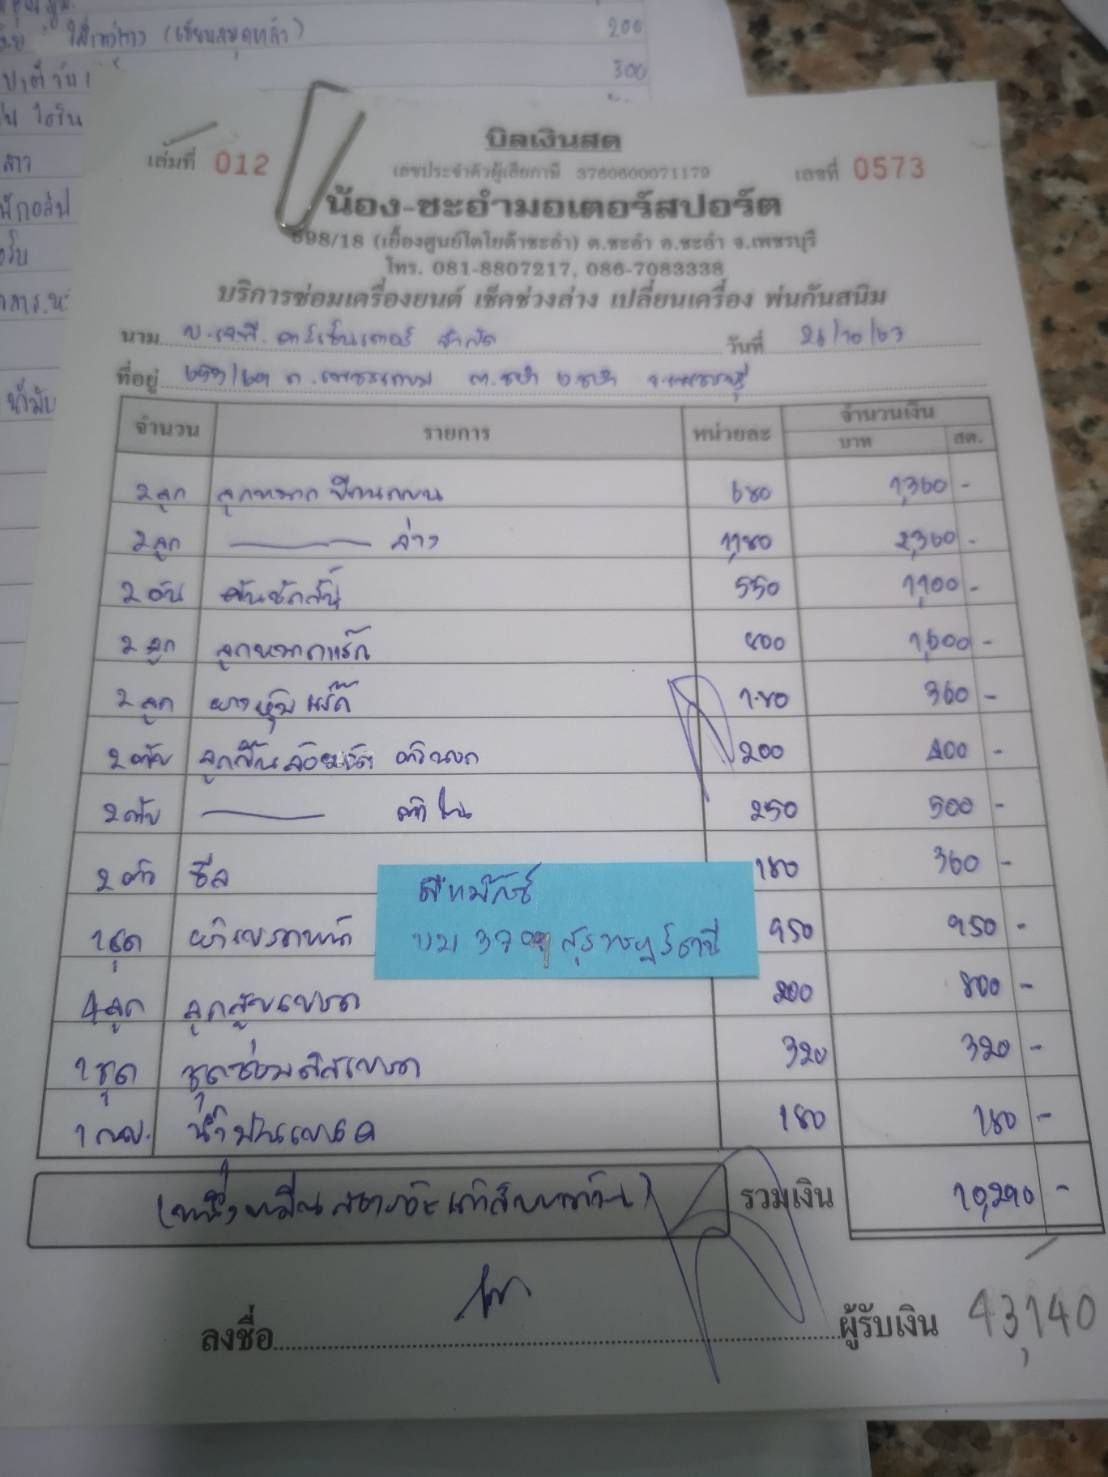 200
300
บิลเงินสด
เล่มที่ 012
เลขประจำตัวผู้เสียภาษี 3760600071179
เลขที่ 0573
น้อง-ชะอำมอเตอร์สปอร์ต
698/18 (เยื้องศูนย์โตโยต้าชะอำ) ต.ชะอำ อ.ชะอำ จ.เพชรบุรี
โทร. 081-8807217, 086-7083338
บริการซ่อมเครื่องยนต์ เช็คช่วงล่าง เปลี่ยนเครื่อง พ่นกันสนิม
นาม บ.เจพี. คาร์เซ็นเตอร์ จำกัด วันที่ 26/10/63
ที่อยู่ ถ.เพชรเกษม ต.ชะอำ อ.ชะอำ จ.เพชรบุรี
จำนวน รายการ หน่วยละ จำนวนเงิน
บาท สต.
2 ลูก ลูกหมากปีกนกบน 680 1,360 -
2 ลูก ล่าง 1,180 2,360 -
2 อัน คันชักสั้น 550 1,100 -
2 ลูก ลูกหมากแร็ค 800 1,600 -
2 ลูก ยางหุ้มแร็ค 180 360 -
2 ตลับ ลูกปืนล้อ ตัวนอก 200 400 -
2 ตลับ ตัวใน 250 500 -
2 ตัว ซีล 180 360 -
1 ชุด ผ้าเบรคหน้า 950 950 -
4 ลูก ลูกสูบเบรค 200 800 -
1 ชุด ชุดซ่อมดิสเบรค 320 320 -
1 น้ำมันเบรค 180 180 -
สุราษฎร์ธานี
(หนึ่งหมื่นสองร้อยเก้าสิบบาทถ้วน) รวมเงิน 10,290 -
ลงชื่อ ผู้รับเงิน 43,140